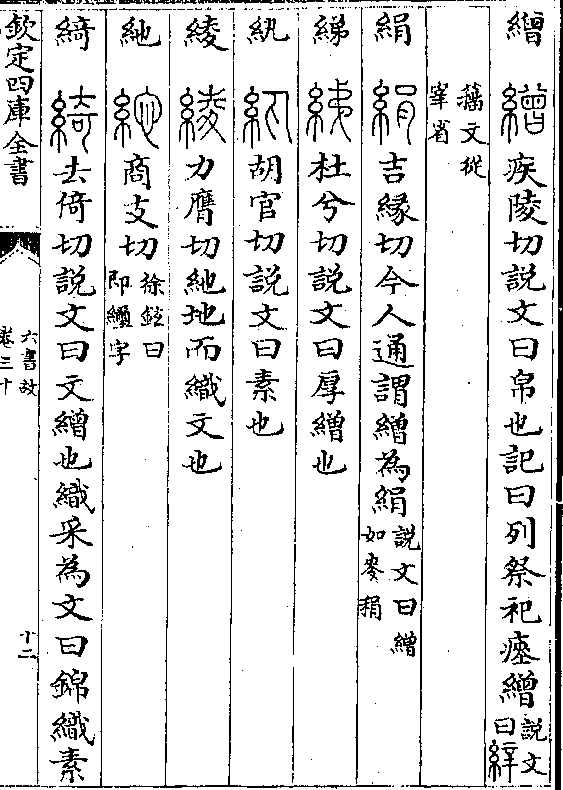 繒 繒 疾陵切説文曰帛也記曰列祭祀瘞繒説文曰𦀓
籀文從宰省
絹 絹 吉縁切今人通謂繒為絹説文曰繒如麥䅌
綈 綈 杜兮切説文曰厚繒也
紈 紈 胡官切説文曰素也
綾 綾 力膺切絁地而織文也
絁 絁 商支切徐鉉曰即繩字
綺 綺 去倚切説文曰文繒也織采為文曰錦織素
欽定四庫全書
六書故
卷三十
十二